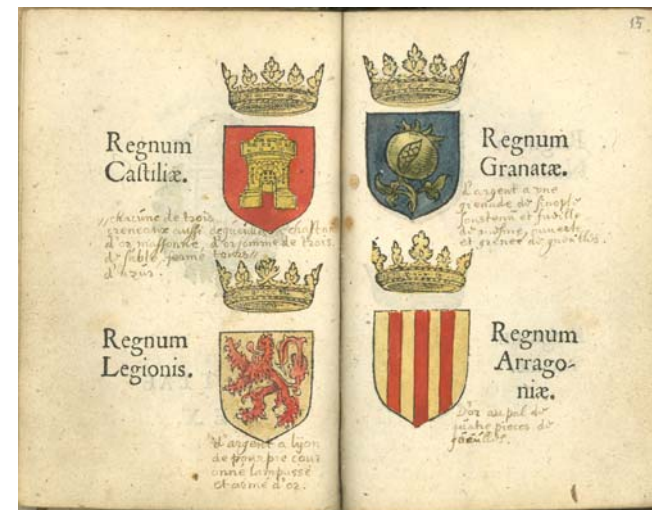 15
Regnum
Castiliæ.
chacune de trois
creneaux aussi de gueules a chasteau
d'or massonné d'or sommé de trois
de sable, fermé tours
d'azur.
Regnum
Legionis.
d'argent a lyon
de pourpre cour
onné lampassé
et armé d'or.
Regnum
Granatæ.
D'argent a une
grenade de sinople
soustenue et
de mesme, ouverte
et grenée de gueulles.
Regnum
Arrago-
niæ.
D'or au pal de
quatre pieces de
gueulles.